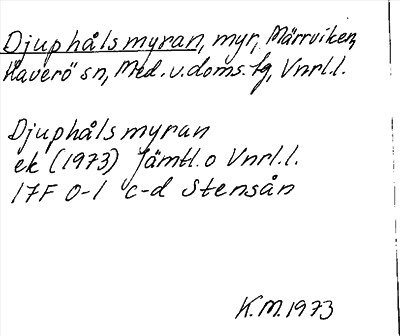 Djuphålsmyran, myr, Märrviken,
Haverö sn, Med. v. doms. fg, Vnrl.l.
Djuphålsmyran
ek (1973) Jämtl. o Vnrl.l.
17F 0-1 c-d Stensån
K.M. 1973